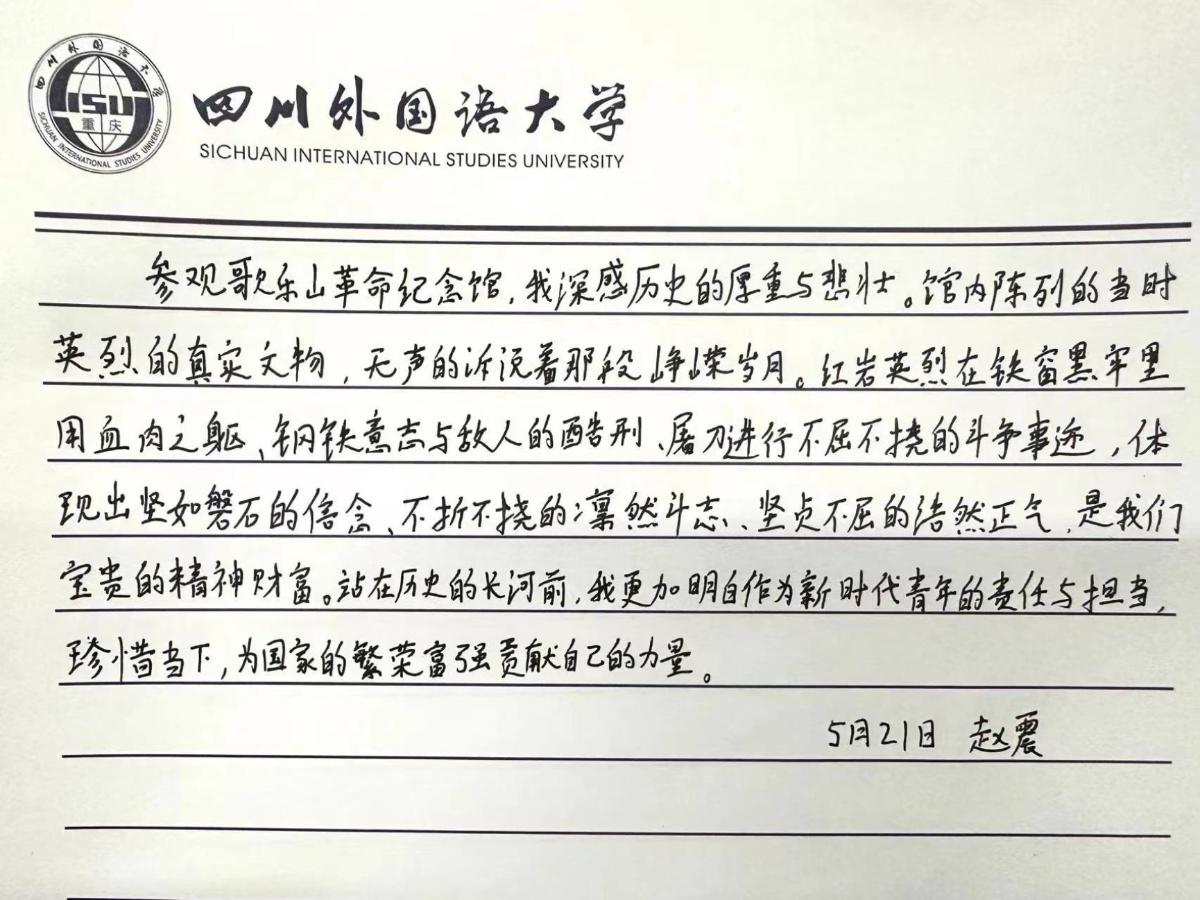 四川外国语大学
SISU
重庆
SICHUAN INTERNATIONAL STUDIES UNIVERSITY
四川外国语大学
SICHUAN INTERNATIONAL STUDIES UNIVERSITY
参观歌乐山革命纪念馆,我深感历史的厚重与悲壮。馆内陈列的当时
英烈的真实文物,无声的诉说着那段峥嵘岁月。红岩英烈在铁窗黑牢里
用血肉之躯、钢铁意志与敌人的酷刑、屠刀进行不屈不挠的斗争事迹,体
现出坚如磐石的信念、不折不挠的凛然斗志、坚贞不屈的浩然正气,是我们
宝贵的精神财富。站在历史的长河前,我更加明白作为新时代青年的责任与担当,
珍惜当下,为国家的繁荣富强贡献自己的力量。
5月21日 赵震